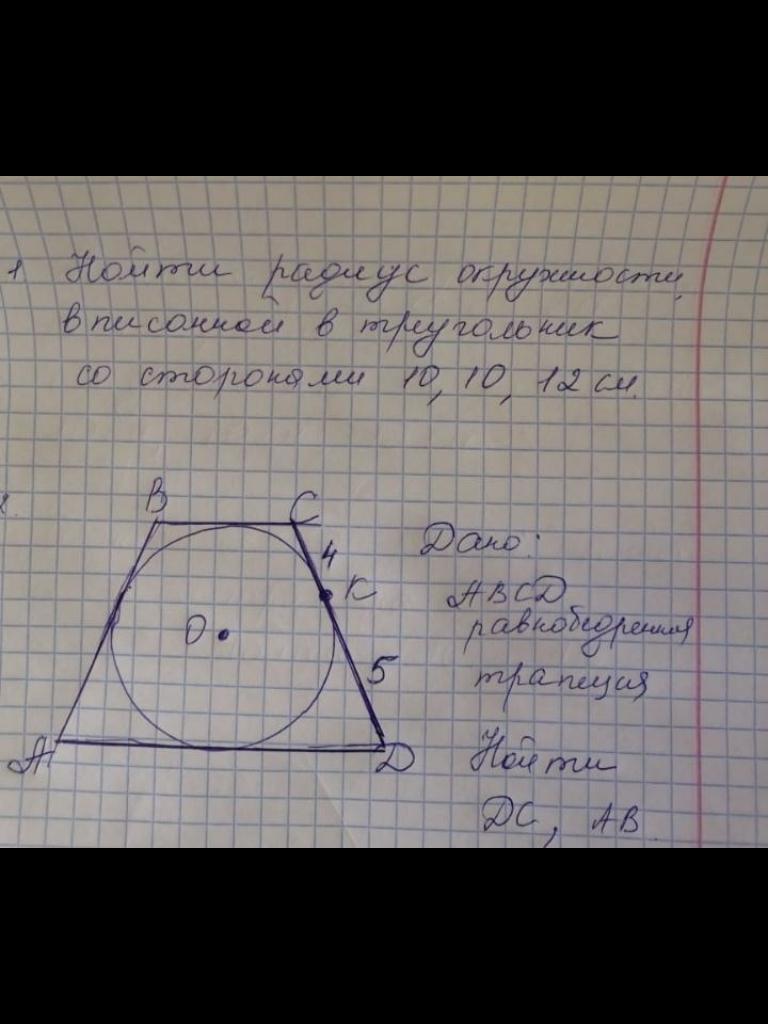 1 Найти радиус окружности,
вписанной в треугольник
со сторонами 10, 10, 12 см.
B C
4
K
O
5
A D
Дано:
ABCD
равнобедренная
трапеция
Найти
DC, AB